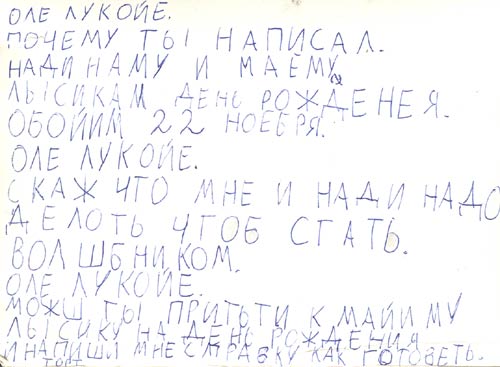 ОЛЕ ЛУКОЙЕ.
ПОЧЕМУ ТЫ НАПИСАЛ.
НАДИНАМУ И МАЁМУ
ЛЫСИКАМ ДЕНЬ РОЖДЕНЕЯ.
ОБОЙИМ 22 НОЕБРЯ.
ОЛЕ ЛУКОЙЕ.
СКАЖ ЧТО МНЕ И НАДИ НАДО
ДЕЛОТЬ ЧТОБ СТАТЬ.
ВОЛШБНИКОМ.
ОЛЕ ЛУКОЙЕ.
МОЖШ ТЫ ПРИТЬТИ К МАЙИМУ
ЛЫСИКУ НА ДЕНЬ РОЖДЕНИЯ
И НАПИШИ МНЕ СПРАВКУ КАК ГОТОВЕТЬ.